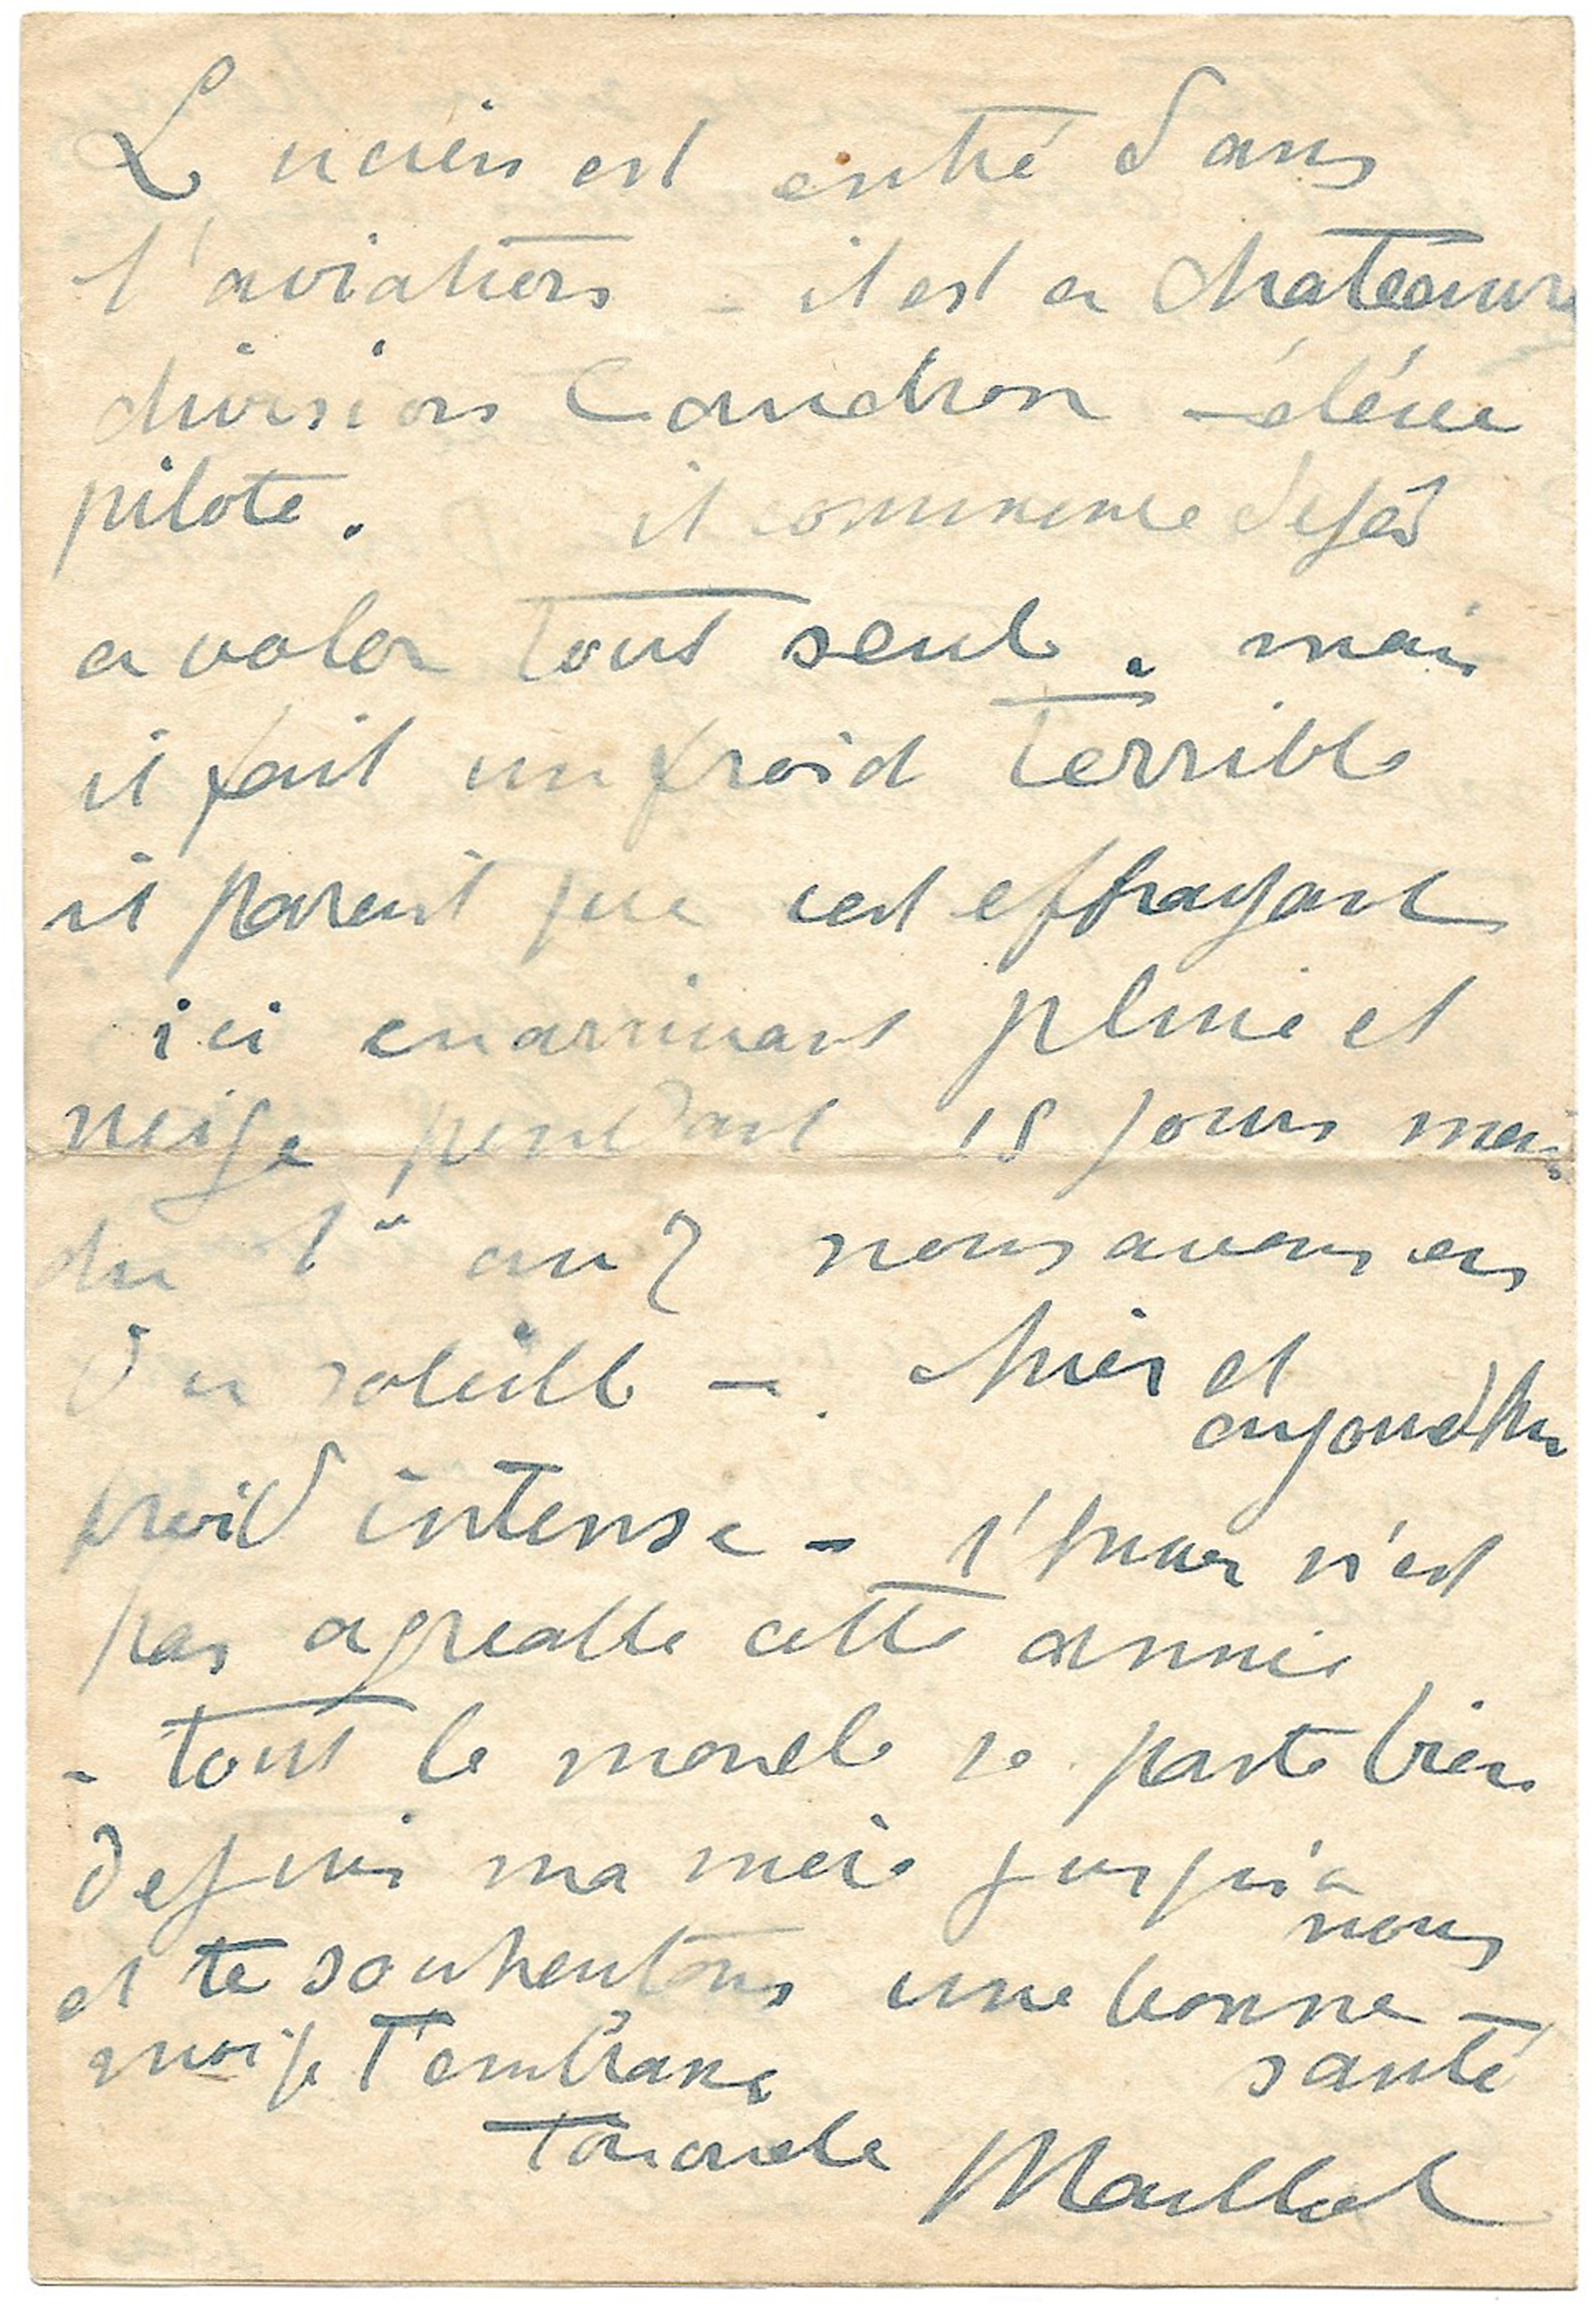 Lucien est entré dans
l'aviation - il est a chateauro
division Caudron - éléve
pilote. il commence dejà
a voler tout seul. mais
il fait un froid terrible
il parait que cest effrayant
ici en arrivant pluie et
neige pendant 15 jours mais
du 1er au 7 nous avons eu
du soleill - hier et
aujourd'hu
froid intense - l'hiver n'est
pas agreable cette année
- tout le monde se porte bien
depuis ma mère jusqu'a
nous
et te souhentons une bonne -
santé
moi je t'embrasse
ton oncle Maillol